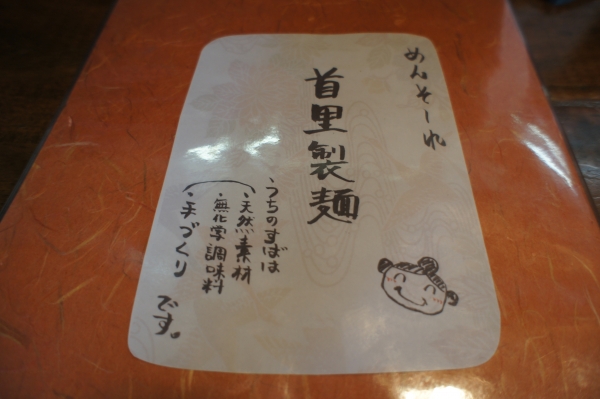 めんそーれ
首里製麺
・うちのすばは
・天然素材
・無化学調味料
・手づくり
です。